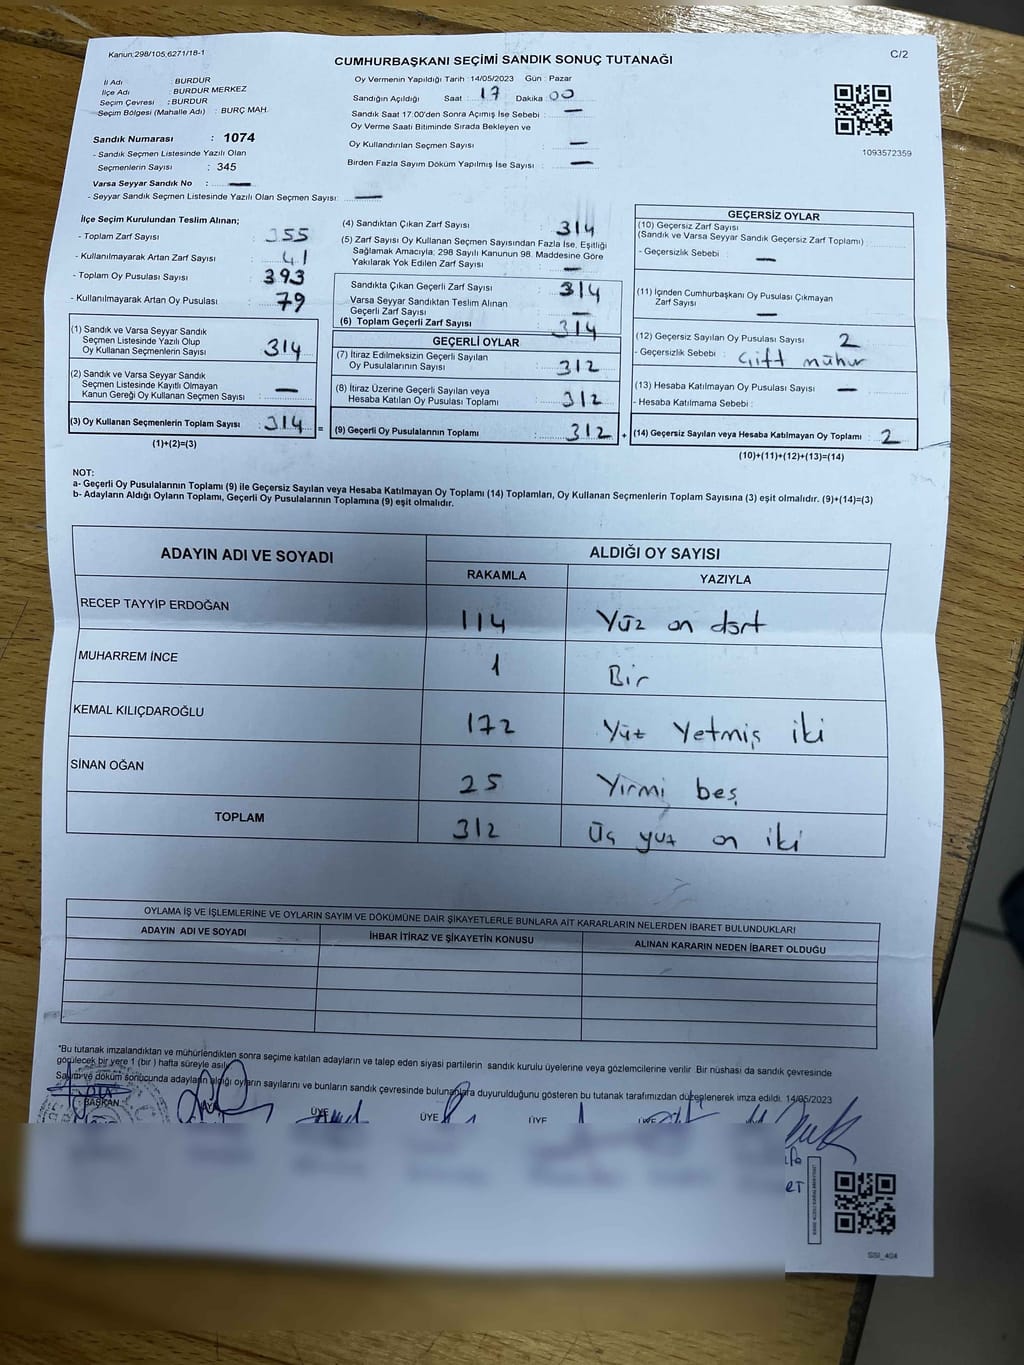 Kanun:298/105;6271/18-1
C/2
CUMHURBAŞKANI SEÇİMİ SANDIK SONUÇ TUTANAĞI
İl Adı : BURDUR
İlçe Adı : BURDUR MERKEZ
Seçim Çevresi : BURDUR
Seçim Bölgesi (Mahalle Adı) : BURÇ MAH.
Sandık Numarası : 1074
- Sandık Seçmen Listesinde Yazılı Olan
Seçmenlerin Sayısı : 345
Varsa Seyyar Sandık No : —
- Seyyar Sandık Seçmen Listesinde Yazılı Olan Seçmen Sayısı: —
Oy Vermenin Yapıldığı Tarih : 14/05/2023 Gün : Pazar
Sandığın Açıldığı Saat : 17 Dakika : 00
Sandık Saat 17:00'den Sonra Açımış İse Sebebi : —
Oy Verme Saati Bitiminde Sırada Bekleyen ve
Oy Kullandırılan Seçmen Sayısı : —
Birden Fazla Sayım Döküm Yapılmış İse Sayısı : —
1093572359
İlçe Seçim Kurulundan Teslim Alınan;
- Toplam Zarf Sayısı : 355
- Kullanılmayarak Artan Zarf Sayısı : 41
- Toplam Oy Pusulası Sayısı : 393
- Kullanılmayarak Artan Oy Pusulası : 79
(1) Sandık ve Varsa Seyyar Sandık
Seçmen Listesinde Yazılı Olup
Oy Kullanan Seçmenlerin Sayısı : 314
(2) Sandık ve Varsa Seyyar Sandık
Seçmen Listesinde Kayıtlı Olmayan
Kanun Gereği Oy Kullanan Seçmen Sayısı : —
(3) Oy Kullanan Seçmenlerin Toplam Sayısı : 314
(1)+(2)=(3)
(4) Sandıktan Çıkan Zarf Sayısı : 314
(5) Zarf Sayısı Oy Kullanan Seçmen Sayısından Fazla İse, Eşitliği
Sağlamak Amacıyla; 298 Sayılı Kanunun 98. Maddesine Göre
Yakılarak Yok Edilen Zarf Sayısı : —
Sandıkta Çıkan Geçerli Zarf Sayısı : 314
Varsa Seyyar Sandıktan Teslim Alınan
Geçerli Zarf Sayısı : —
(6) Toplam Geçerli Zarf Sayısı : 314
GEÇERLİ OYLAR
(7) İtiraz Edilmeksizin Geçerli Sayılan
Oy Pusulalarının Sayısı : 312
(8) İtiraz Üzerine Geçerli Sayılan veya
Hesaba Katılan Oy Pusulası Toplamı : 312
= (9) Geçerli Oy Pusulalarının Toplamı : 312
GEÇERSİZ OYLAR
(10) Geçersiz Zarf Sayısı
(Sandık ve Varsa Seyyar Sandık Geçersiz Zarf Toplamı)
- Geçersizlik Sebebi : —
(11) İçinden Cumhurbaşkanı Oy Pusulası Çıkmayan
Zarf Sayısı : —
(12) Geçersiz Sayılan Oy Pusulası Sayısı : 2
- Geçersizlik Sebebi : Çift mühür
(13) Hesaba Katılmayan Oy Pusulası Sayısı : —
- Hesaba Katılmama Sebebi :
+ (14) Geçersiz Sayılan veya Hesaba Katılmayan Oy Toplamı : 2
(10)+(11)+(12)+(13)=(14)
NOT:
a- Geçerli Oy Pusulalarının Toplamı (9) ile Geçersiz Sayılan veya Hesaba Katılmayan Oy Toplamı (14) Toplamları, Oy Kullanan Seçmenlerin Toplam Sayısına (3) eşit olmalıdır. (9)+(14)=(3)
b- Adayların Aldığı Oyların Toplamı, Geçerli Oy Pusulalarının Toplamına (9) eşit olmalıdır.
ADAYIN ADI VE SOYADI
ALDIĞI OY SAYISI
RAKAMLA YAZIYLA
RECEP TAYYİP ERDOĞAN 114 Yüz on dört
MUHARREM İNCE 1 Bir
KEMAL KILIÇDAROĞLU 172 Yüz Yetmiş iki
SİNAN OĞAN 25 Yirmi beş
TOPLAM 312 Üç yüz on iki
OYLAMA İŞ VE İŞLEMLERİNE VE OYLARIN SAYIM VE DÖKÜMÜNE DAİR ŞİKAYETLERLE BUNLARA AİT KARARLARIN NELERDEN İBARET BULUNDUKLARI
ADAYIN ADI VE SOYADI İHBAR İTİRAZ VE ŞİKAYETİN KONUSU ALINAN KARARIN NEDEN İBARET OLDUĞU
*Bu tutanak imzalandıktan ve mühürlendikten sonra seçime katılan adayların ve talep eden siyasi partilerin sandık kurulu üyelerine veya gözlemcilerine verilir. Bir nüshası da sandık çevresinde
görülecek bir yere 1 (bir) hafta süreyle asılır.
Sayım ve döküm sonucunda adayların aldığı oyların sayılarını ve bunların sandık çevresinde bulunanlara duyurulduğunu gösteren bu tutanak tarafımızdan düzenlenerek imza edildi. 14/05/2023
BAŞKAN ÜYE ÜYE ÜYE ÜYE
SSI_404